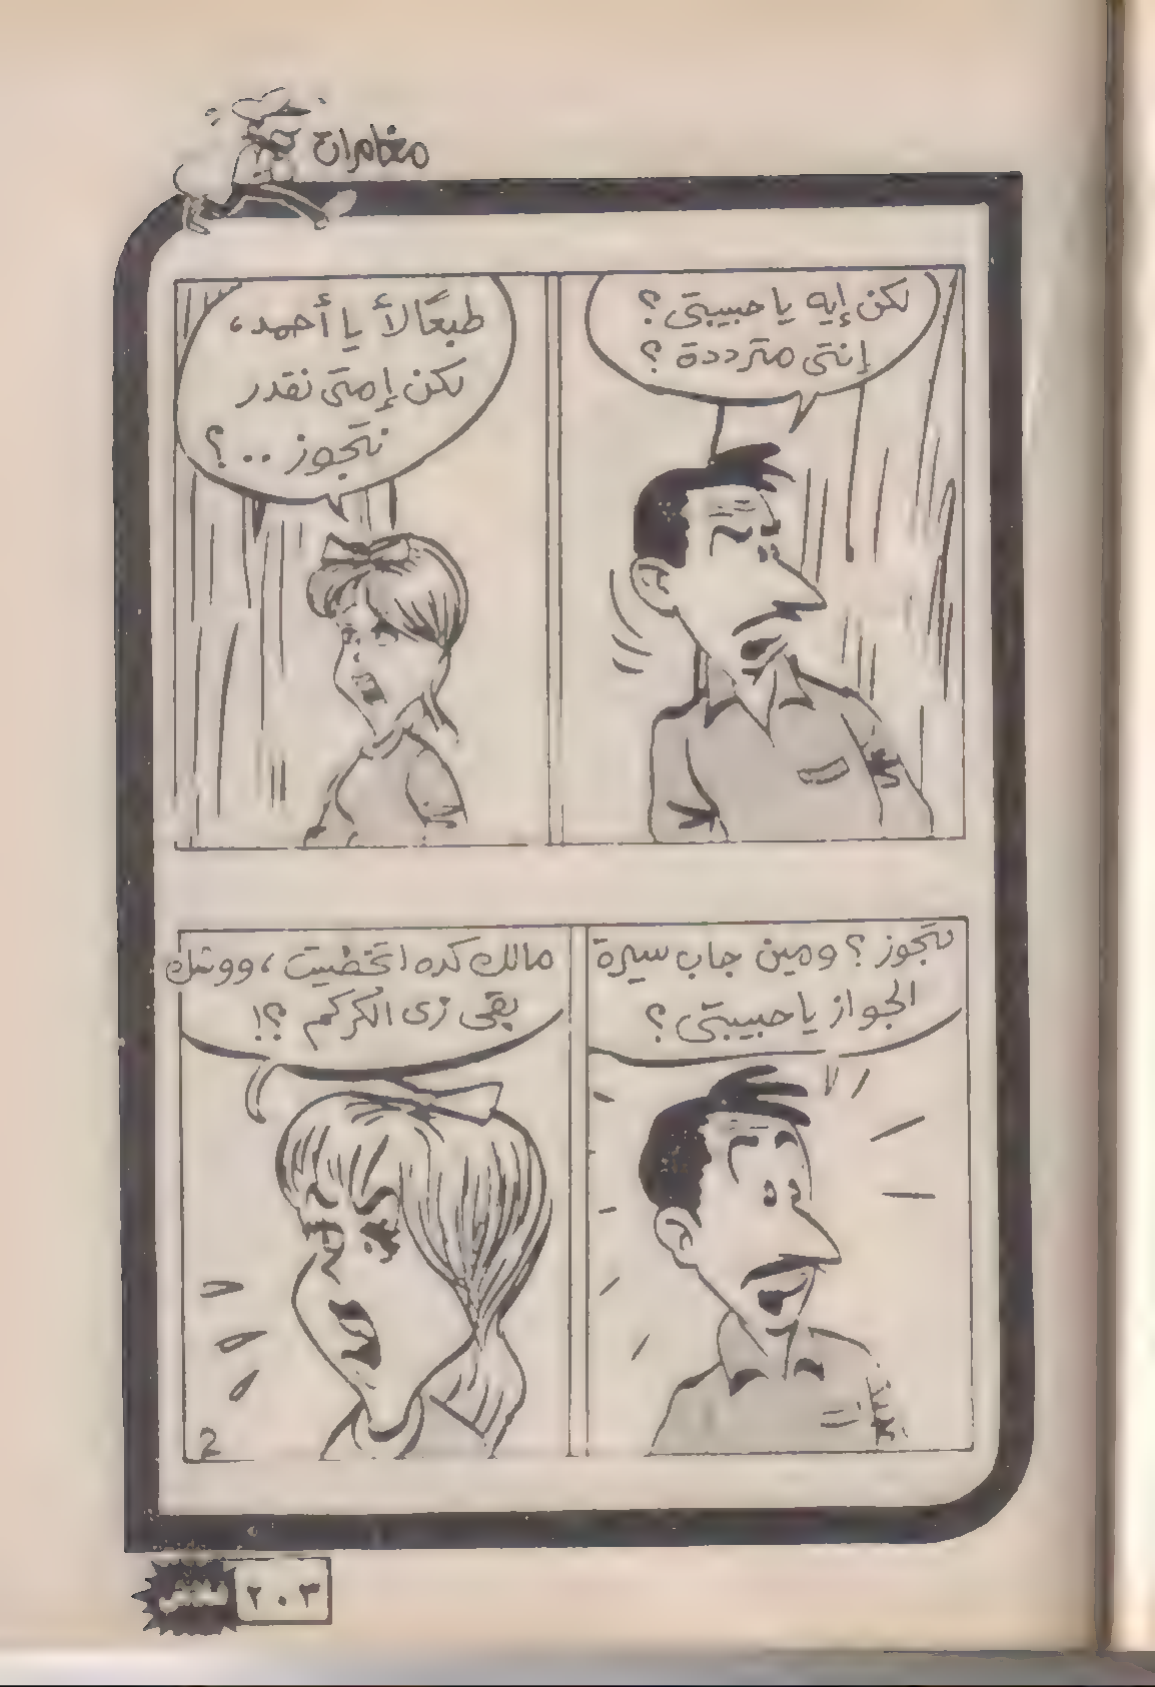 مغامرات
لكن إيه ياحبيبتى ؟
إنتى مترددة ؟
طبعًا لأ يا أحمد،
لكن إمتى نقدر
نتجوز .. ؟
نتجوز ؟ ومين جاب سيرة
الجواز ياحبيبتى ؟
مالك كده اتخضيت، ووشك
بقى زى الكركم ؟!
2
فلاش
٢٠٣